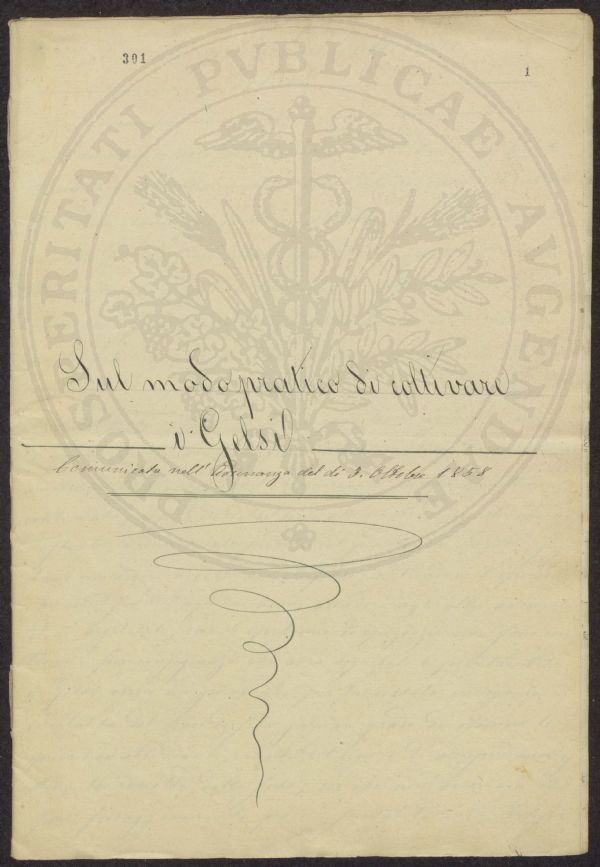 301
1
PROSPERITATI PVBLICAE AVGENDAE
Sul modo pratico di coltivare
i Gelsi
Comunicata nell' Adunanza del dì 3. Ottobre 1858